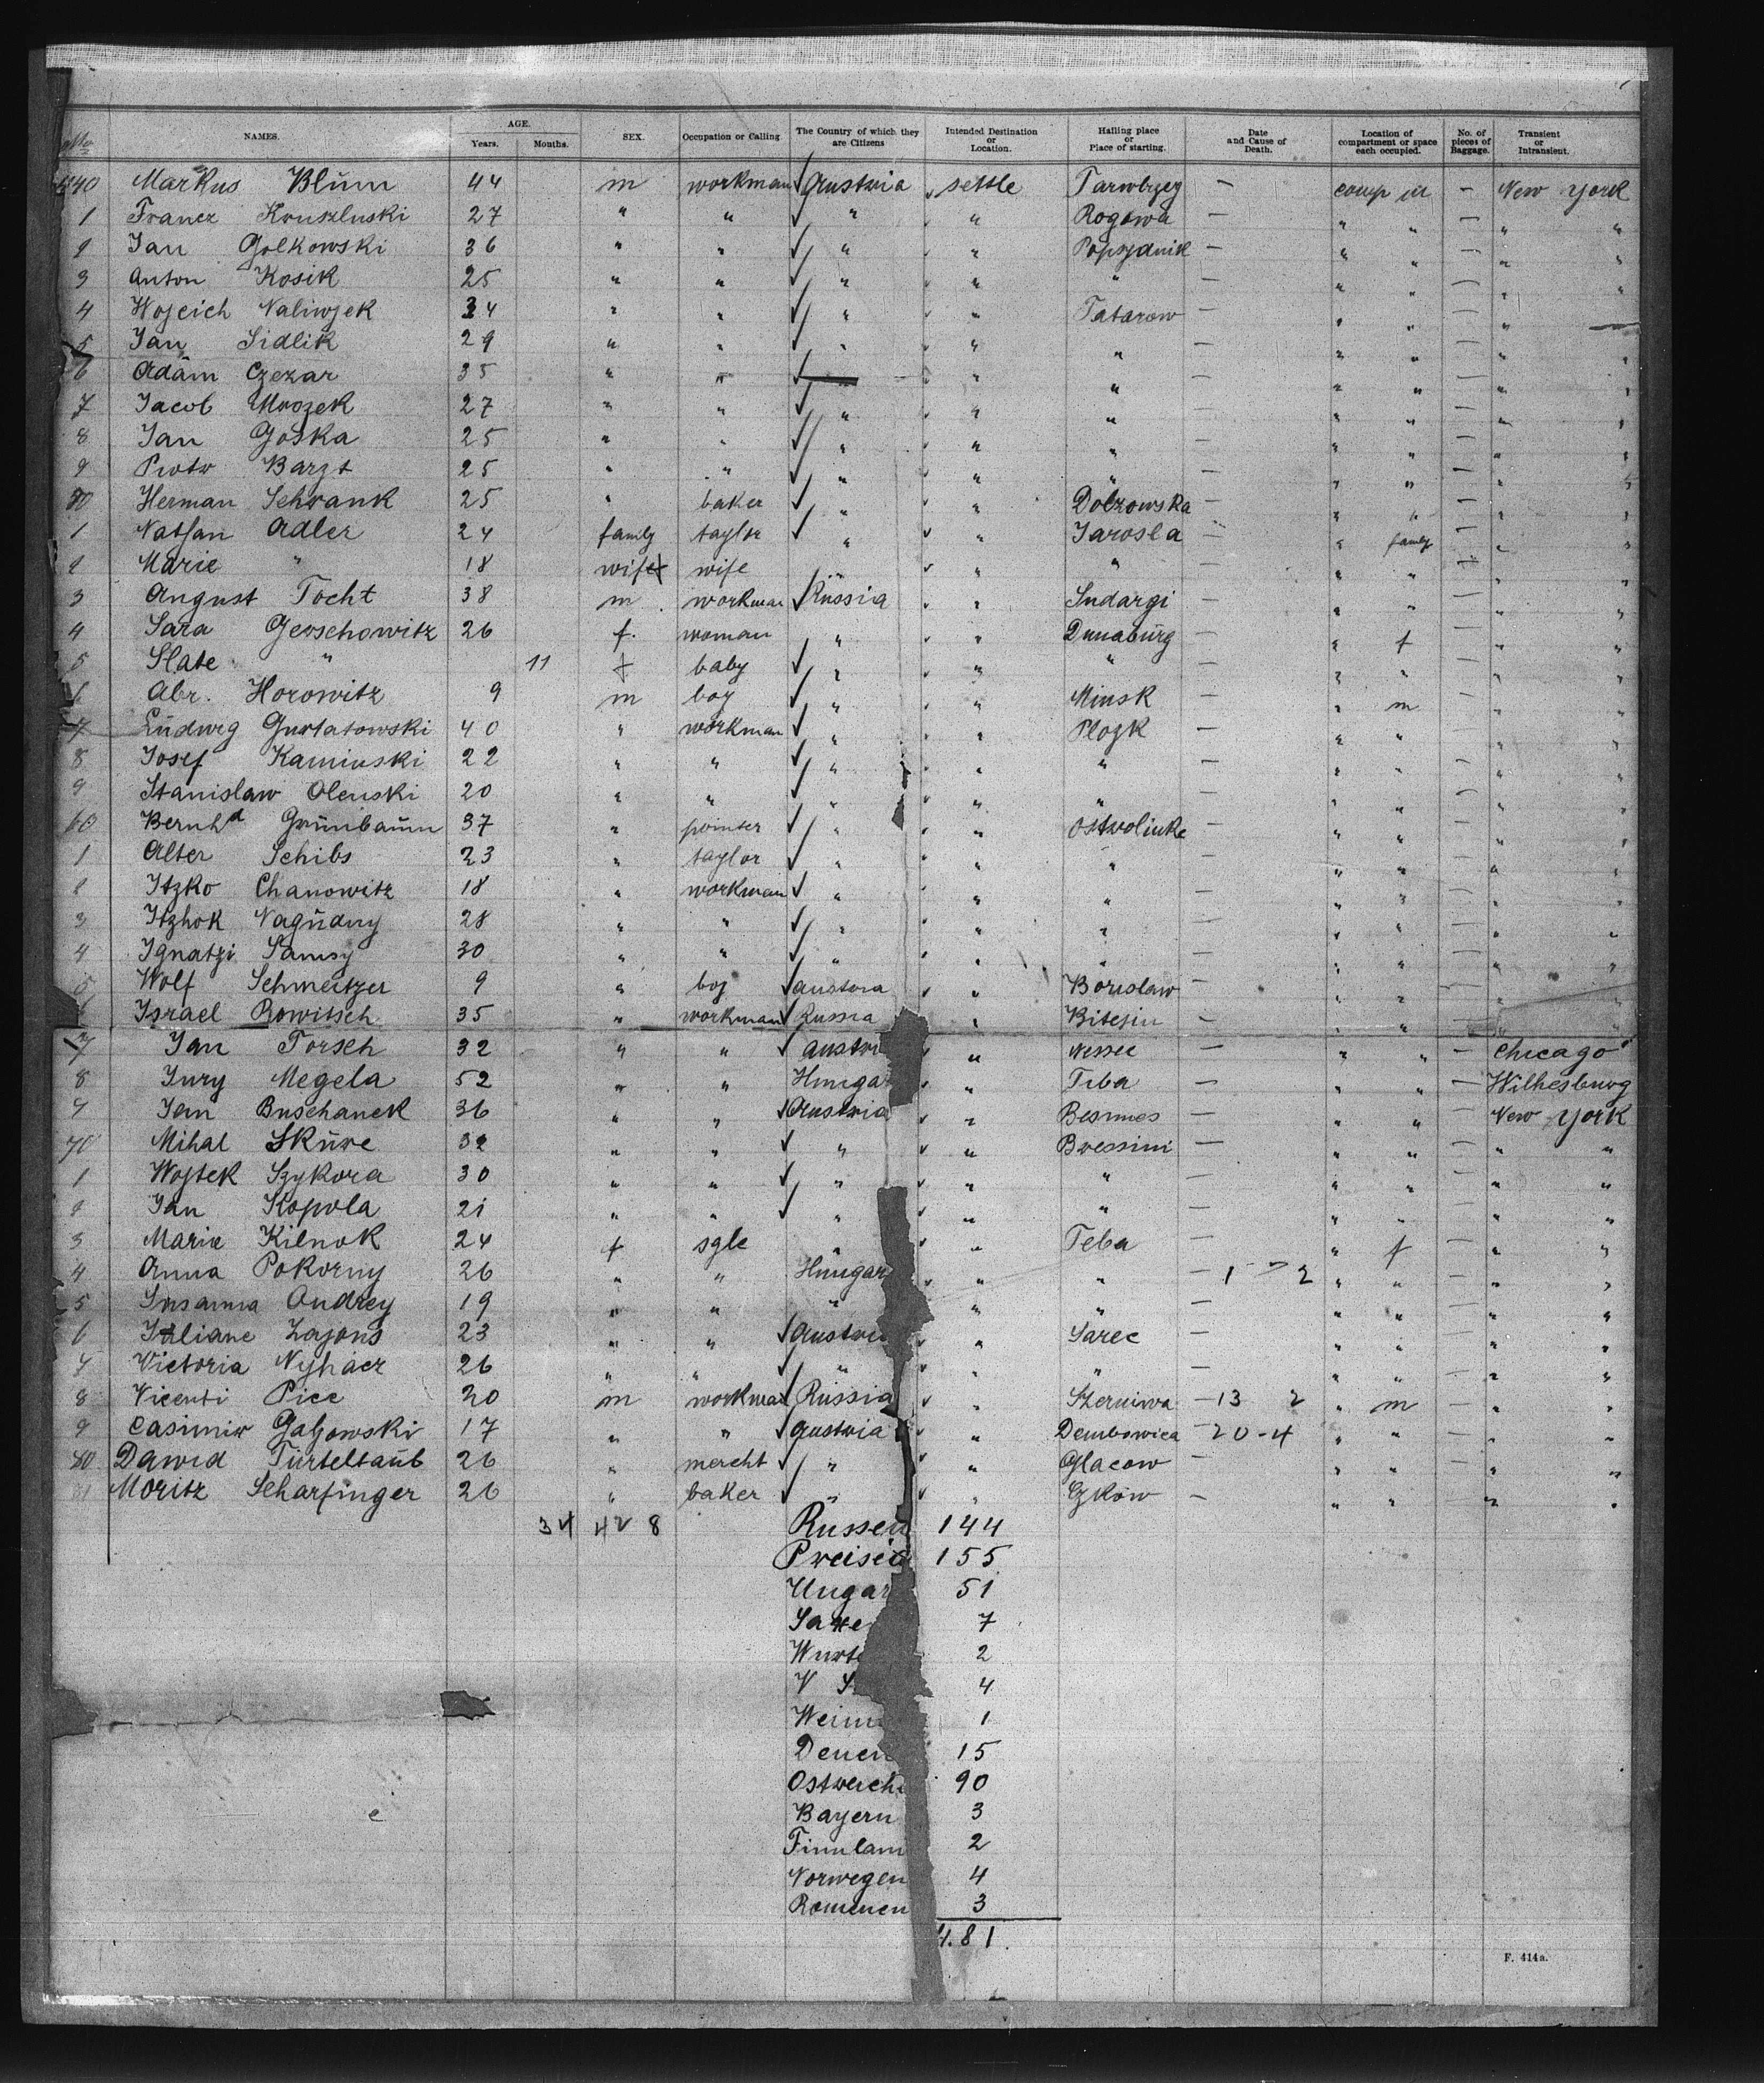 No. NAMES. AGE. Years. Months. SEX. Occupation or Calling The Country of which they are Citizens Intended Destination or Location. Hailing place or Place of starting. Date and Cause of Death. Location of compartment or space each occupied. No. of pieces of Baggage. Transient or Intransient.
440 Markus Blum 44 m workman Austria settle comp — New York
1 Franez 27 " " " " Rogowa — " " — " "
2 Jan Golkowski 36 " " " " — " " — " "
3 Anton Kosik 25 " " " " " — " " — " "
4 Wojcich Naliwjek 34 " " " " Tatarow — " " — "
5 Jan Sidlik 29 " " " " " — " " — " "
6 Adam Czezar 35 " " — " " — " " — " "
7 Jacob Mrozek 27 " " " " " — " " — " "
8 Jan Goska 25 " " " " " — " " — " "
9 Piotr Barzt 25 " " " " " — " " — " "
50 Herman Schwank 25 " baker " " Dolzowska — " " — " "
1 Nathan Adler 24 family taylor " " Jarosla — " family — " "
2 Marie " 18 wife wife " " " — " " — " "
3 August Tocht 38 m workman Russia " Sudargi — " " — " "
4 Sara Gerschowitz 26 f. woman " " Dunaburg — " f — " "
5 Slate " 11 f baby " " " — " " — " "
6 Abr. Horowitz 9 m boy " " Minsk — " m — " "
7 Ludwig Gurtatowski 40 " workman " " Plozk — " " — " "
8 Josef Kaminski 22 " " " " " — " " — " "
9 Stanislaw Olenski 20 " " " " " — " " — " "
60 Bernhd Grünbaum 37 " " " Ostrolinke — " " — " "
1 Alter Schibs 23 " taylor " " " — " " — " "
2 Itzko Chanowitz 18 " workman " " " — " " — " "
3 Itzhok Nagudny 28 " " " " " — " " — " "
4 Ignatzi Samsy 30 " " " " " — " " — " "
5 Wolf Schmeitzer 9 " boy Austria " Borislaw — " " — " "
6 Israel Rowitsch 35 " workman Russia " — " " — " "
7 Jan Torsch 32 " " Austri " — " " — Chicago
8 Jury Megela 52 " " Hungar " Tiba — " " — Wilhesburg
9 Jan Buschanek 36 " " Austria " — " " — New York
70 Mihal Skure 32 " " " " Bressini — " " — " "
1 Wojtek Szykora 30 " " " " " — " " — " "
2 Jan Kopola 21 " " " " " — " " — " "
3 Marie Kilnok 24 f sgle " " Teba — " f — " "
4 Anna Pokorny 26 " " Hungar " " — 1 - 2 " " — " "
5 Susanna Andrey 19 " " " " " — " " — " "
6 Juliane Zajons 23 " " Austri " Sarec — " " — " "
7 Victoria Nyhacz 26 " " " " " — " " — " "
8 Vicenti Pice 20 m workman Russia " — 13 2 " m — " "
9 Casimir Galzowski 17 " " Austria " Dembowica — 20-4 " " — " "
80 Dawid Turteltaub 26 " mercht " " Glacow — " " — " "
81 Moritz Scharfinger 26 " baker " " — " " — " "
34 42 8 Russen 144
Preisen 155
Ungar 51
7
Wurte 2
V S 4
Weim 1
Denen 15
Ostreich 90
Bayern 3
Finnlan 2
Norwegen 4
Romenen 3
481.
F. 414a.